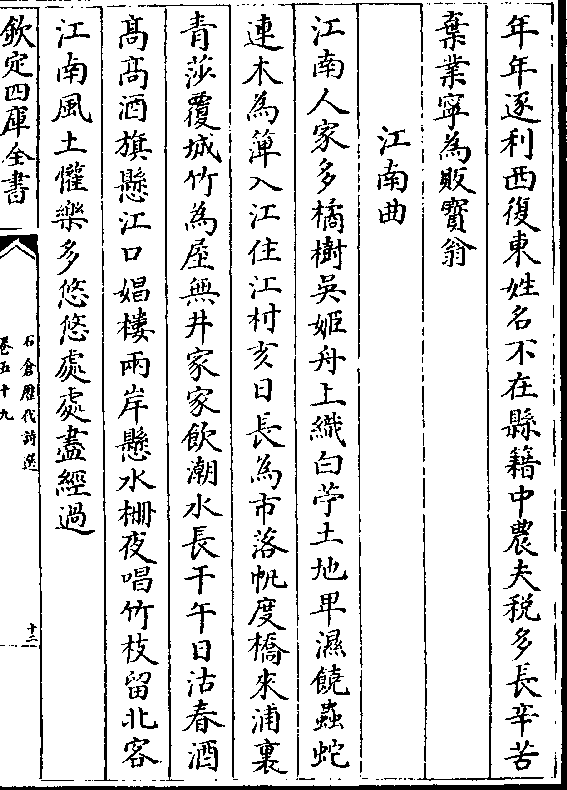 年年逐利西復東姓名不在縣籍中農夫税多長辛苦
棄業寧為販寳翁
江南曲
江南人家多橘樹吳姬舟上織白苧土地卑濕饒蟲蛇
連木為簰入江住江村亥日長為市落帆度橋來浦裏
青莎覆城竹為屋無井家家飲潮水長干午日沽春酒
髙髙酒旗懸江口娼樓兩岸懸水柵夜唱竹枝留北客
江南風土懽樂多悠悠處處盡經過
欽定四庫全書
石倉歴代詩選
卷五十九
十二